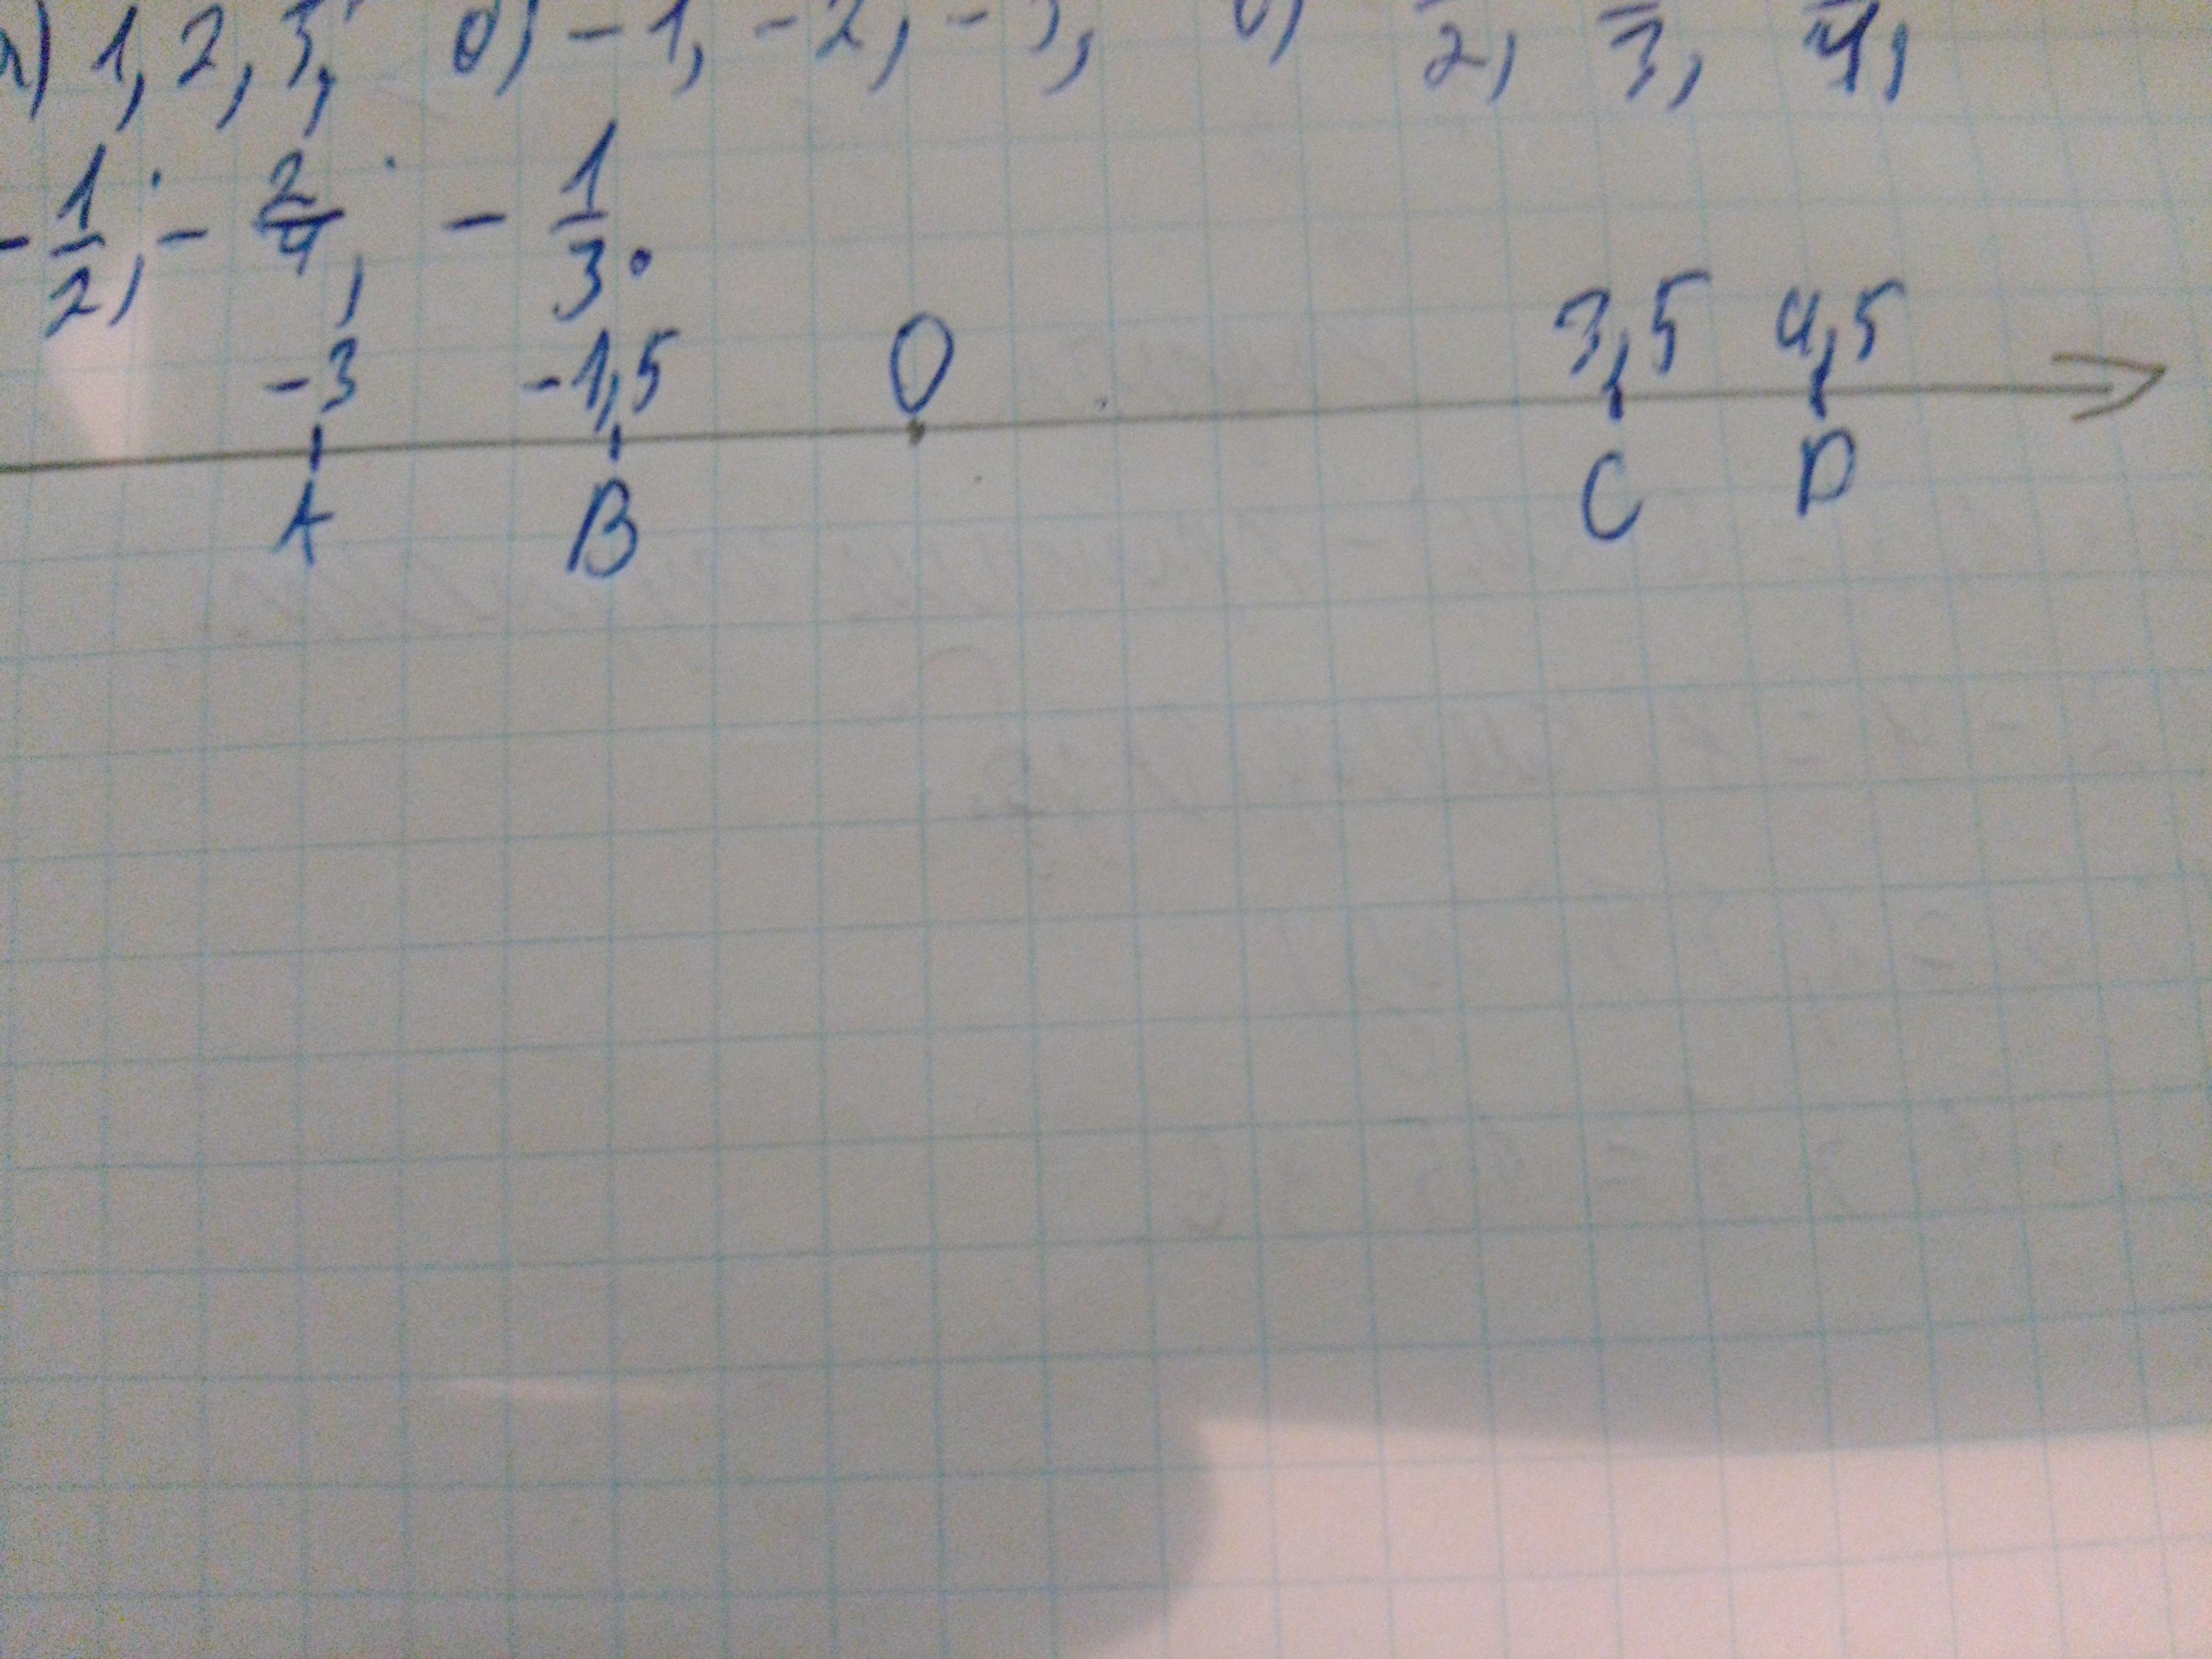 а) 1, 2, 3; б) -1, -2, -3, в) 2, 3, 4,
- 1/2, - 2/4, - 1/3.
-3 -1,5 0 3,5 4,5
A B C D